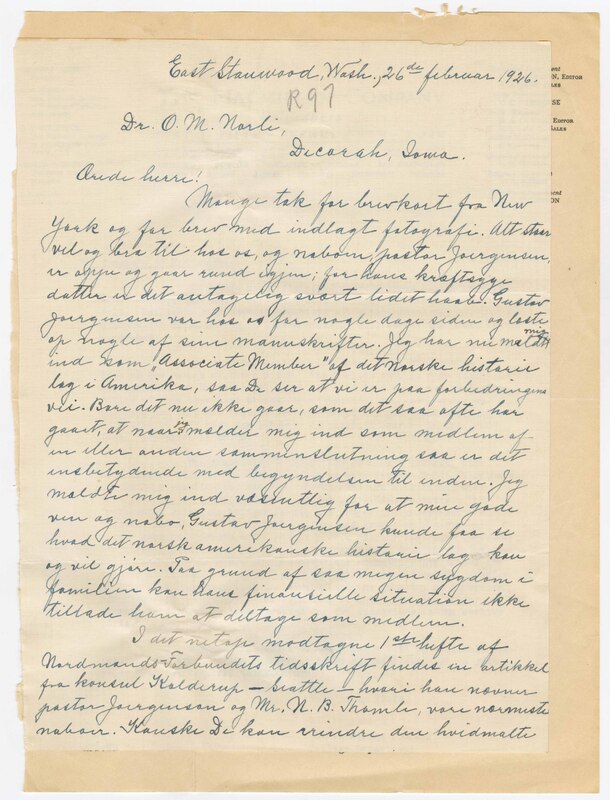 East Stanwood, Wash., 26de februar 1926.
R97
Dr. O. M. Norli,
Decorah, Iowa.
Ærede herre!
Mange tak for brevkort fra New
York og for brev med indlagt fotografi. Alt staar
vel og bra til hos os, og naboen, pastor Joergensen,
er oppe og gaar rund igjen; for hans kræftsyge
datter er det antagelig svært lidet haab. Gustav
Joergensen var hos os for nogle dage siden og læste
op nogle af sine manuskrifter. Jeg har nu meldt mig
ind som "Associate Member" af det norske historie
lag i Amerika, saa De ser at vi er paa forbedringens
vei. Bare det nu ikke gaar, som det saa ofte har
gaaet, at naar jeg melder mig ind som medlem af
en eller anden sammenslutning saa er det
ensbetydende med begyndelsen til enden. Jeg
meldte mig ind væsentlig for at min gode
ven og nabo, Gustav Joergensen kunde faa se
hvad det norskamerikanske historie lag kan
og vil gjøre. Paa grund af saa megen sygdom i
familien kan hans finansielle situation ikke
tillade ham at deltage som medlem.
I det netop modtagne 1ste hefte af
Nordmands Forbundets tidsskrift findes en artikkel
fra konsul Kolderup - Seattle - hvori han nævner
pastor Joergenson og Mr. N. B. Thomle, vore nærmeste
naboer. Kanske De kan erindre den hvidmalte
N, Editor
ales
SE
Editor
ales
ent
ON